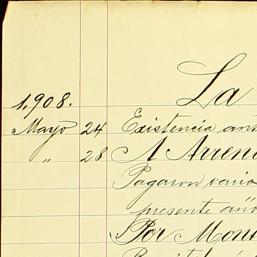 La
1,908.
Mayo 24 Existencia an
" 28 A Arren
Pagaron vario
presente año
Por Mon